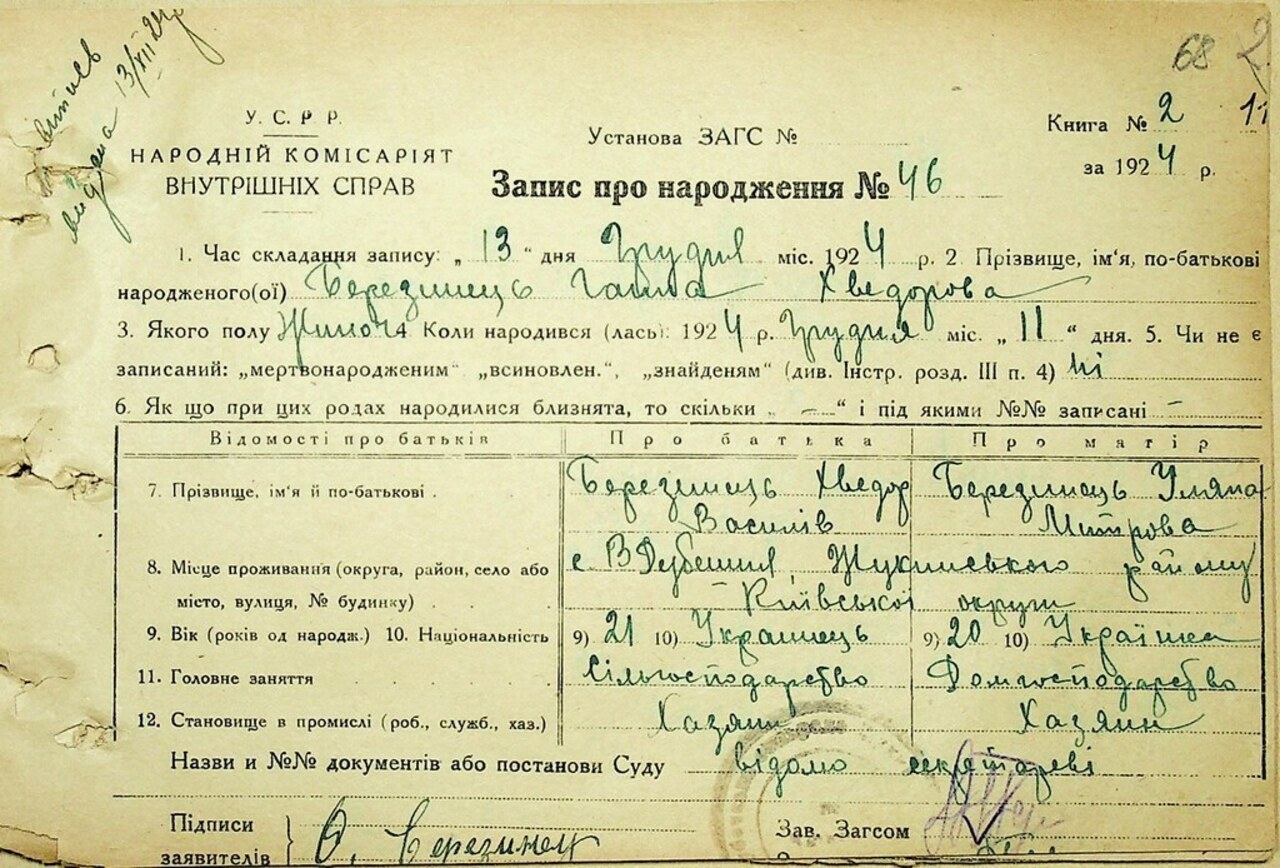 видана 13/XII 24р
68 2
У. С. Р Р.
НАРОДНІЙ КОМІСАРІЯТ
ВНУТРІШНІХ СПРАВ
Установа ЗАГС №
Запис про народження № 46
Книга № 2 11
за 1924 р.
1. Час складання запису: „ 13 “ дня Грудня міс. 1924 р. 2. Прізвище, ім'я, по-батькові
народженого(ої) Березинець Ганна Хведорова
3. Якого полу Жиноч 4 Коли народився (лась): 1924 р. Грудня міс. „ 11 “ дня. 5. Чи не є
записаний: „мертвонародженим“ „всиновлен.“, „знайденям“ (див. Інстр. розд. III п. 4) ні
6. Як що при цих родах народилися близнята, то скільки „ — “ і під якими №№ записані –
Відомості про батьків Про батька Про матір
7. Прізвище, ім'я й по-батькові . Березинець Хведор Березинець Уляна
Василів Митрова
8. Місце проживання (округа, район, село або с. В Дубешня, Жукинського району
місто, вулиця, № будинку) . . Київської округи
9. Вік (років од народж.) 10. Національність 9) 21 10) Украинець 9) 20 10) Українка
11. Головне заняття . . . . Сільгосподарство Домгосподарство
12. Становище в промислі (роб., служб., хаз.) Хазяин Хазяин
Назви и №№ документів або постанови Суду відомо секретареві
Підписи О. Березинец Зав. Загсом
заявителів